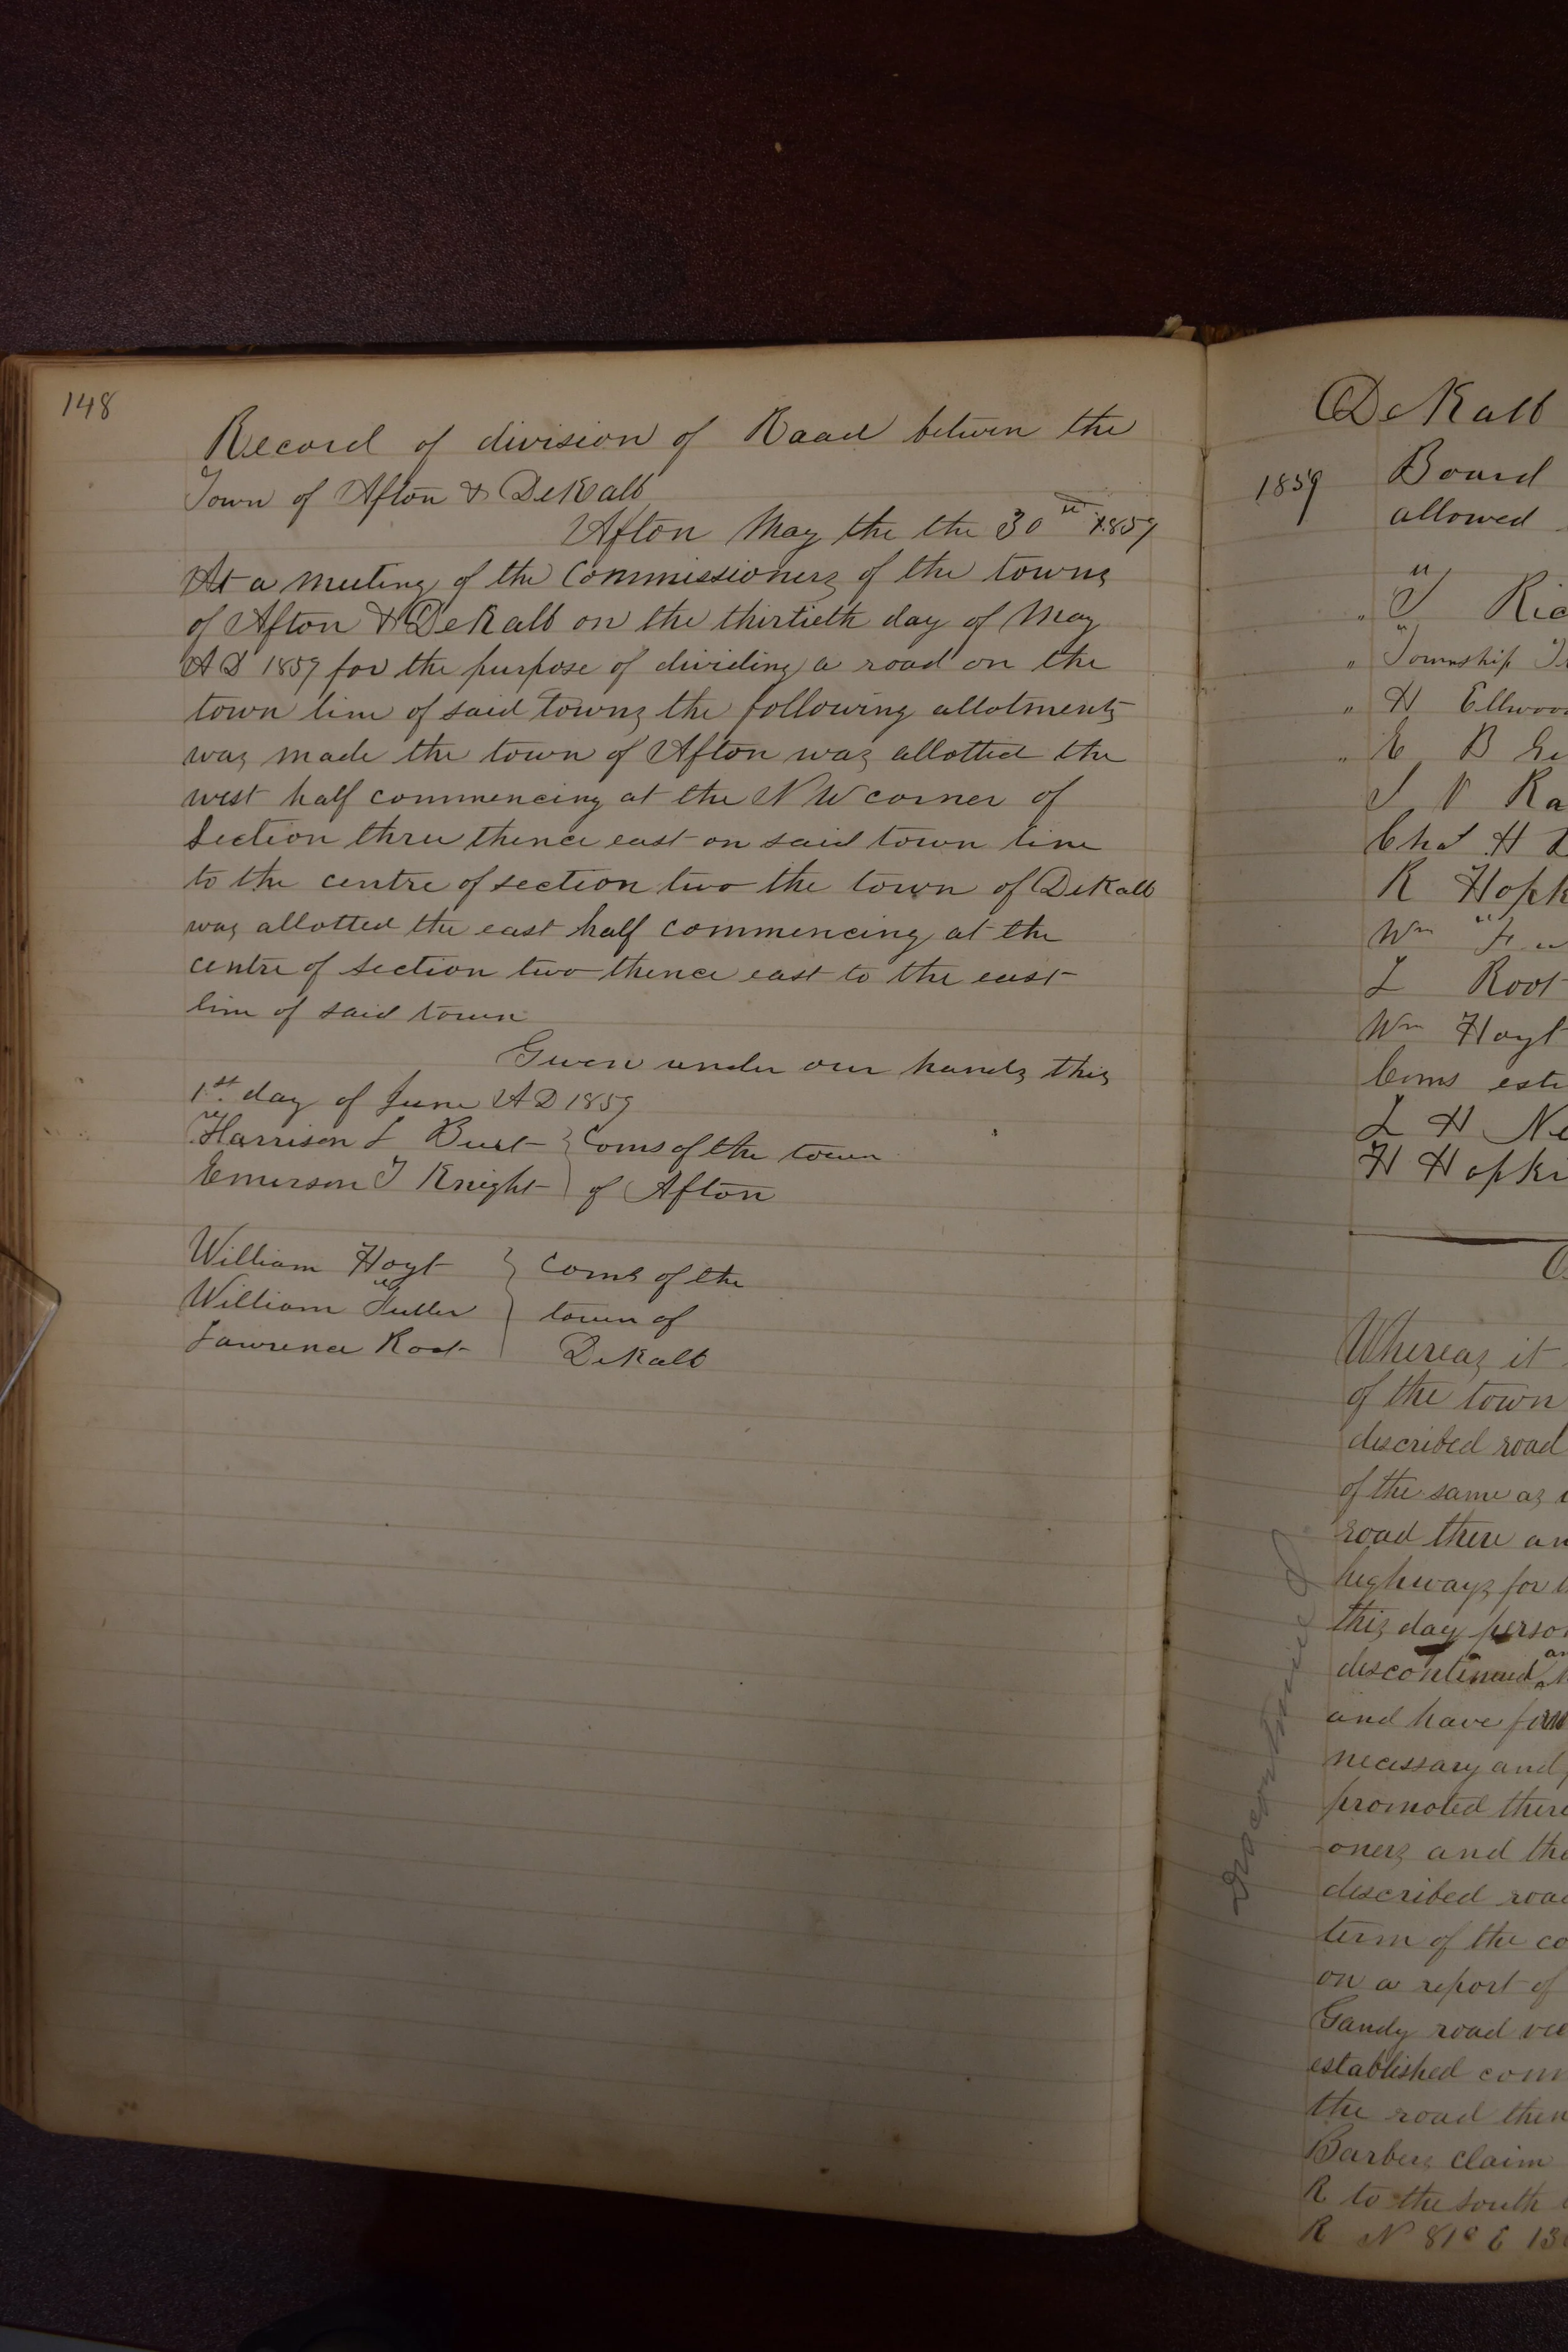 148
Record of division of Raad betwen the
Town of Afton & DeKalb
Afton May the the 30th 1859
At a meeting of the Commissioners of the towns
of Afton & DeKalb on the thirtieth day of May
A D 1859 for the purpose of dividing a road on the
town line of said towns the following allotments
was made the town of Afton was allotted the
west half commencing at the N W corner of
Section three thence east on said town line
to the centre of section two the town of DeKalb
was allotted the east half commencing at the
centre of section two thence east to the east
line of said town
Given under our hands this
1st day of June A D 1859
Harrison L Burt } Coms of the town
Emerson T Knight } of Afton
William Hoyt } Coms of the
William Fuller } town of
Lawrence Root } DeKalb
DeKalb
1859 Board
allowed
" J Ric
" Township
" H Ellwoo
" E B
S V Ra
Chas H
R Hopk
Wm
L Root
Wm Hoyt
Coms
L H Ne
H Hopki
Whereas it
of the town
described road
of the same as
road there an
highways for
this day person
discontinued
and have
necessary and
promoted there
oners and the
described road
term of the co
on a report of
Gandy road
established com
the road then
Barbers claim
R to the South
R N 81° E 13